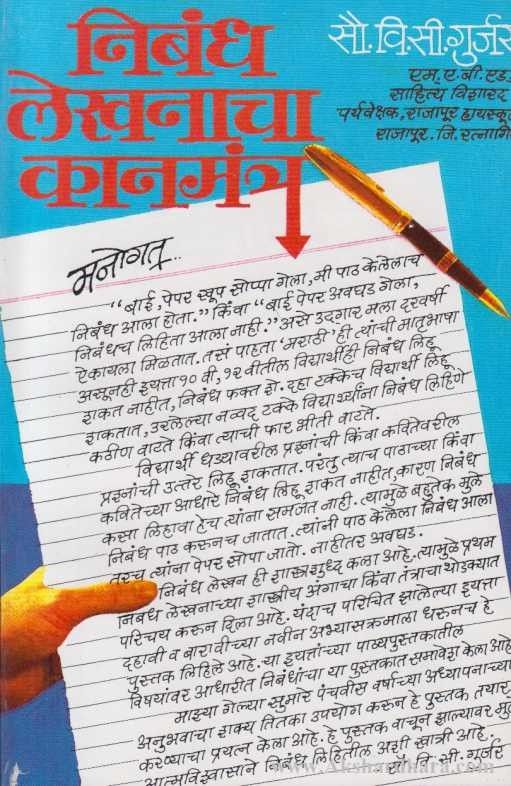 निबंध
लेखनाचा
कानमंत्र
सौ. वि. सी. गुर्जर
एम. ए. बी. एड.
साहित्य विशारद
पर्यवेक्षक, राजापूर हायस्कूल
राजापूर. जि. रत्नागि
मनोगत...
“बाई, पेपर खूप सोप्पा गेला, मी पाठ केलेलाच
निबंध आला होता.” किंवा “बाई पेपर अवघड गेला,
निबंधच लिहिता आला नाही.” असे उद्गार मला दरवर्षी
ऐकायला मिळतात. तसं पाहता ‘मराठी’ ही त्यांची मातृभाषा
असूनही इयत्ता १० वी, १२ वीतील विद्यार्थीही निबंध लिहू
शकत नाहीत, निबंध फक्त शे. दहा टक्केच विद्यार्थी लिहू
शकतात, उरलेल्या नव्वद टक्के विद्यार्थ्यांना निबंध लिहिणे
कठीण वाटते किंवा त्याची फार भीती वाटते.
विद्यार्थी धड्यावरील प्रश्नांची किंवा कवितेवरील
प्रश्नांची उत्तरे लिहू शकतात. परंतु त्याच पाठाच्या किंवा
कवितेच्या आधारे निबंध लिहू शकत नाहीत, कारण निबंध
कसा लिहावा हेच त्यांना समजत नाही. त्यामुळे बहुतेक मुले
निबंध पाठ करूनच जातात. त्यांनी पाठ केलेला निबंध आला
तरच त्यांना पेपर सोपा जातो. नाहीतर अवघड.
निबंध लेखन ही शास्त्रशुध्द कला आहे. त्यामुळे प्रथम
निबंध लेखनाच्या शास्त्रीय अंगाचा किंवा तंत्राचा थोडक्यात
परिचय करून दिला आहे. यंदाच परिचित झालेल्या इयत्ता
दहावी व बारावीच्या नवीन अभ्यासक्रमाला धरुनच हे
पुस्तक लिहिले आहे. या इयत्तांच्या पाठ्यपुस्तकातील
विषयांवर आधारीत निबंधांचा या पुस्तकात समावेश केला आहे
माझ्या गेल्या सुमारे पंचवीस वर्षाच्या अध्यापनाच्या
अनुभवाचा शक्य तितका उपयोग करून हे पुस्तक तयार
करण्याचा प्रयत्न केला आहे. हे पुस्तक वाचून झाल्यावर मु
आत्मविश्वासाने निबंध लिहितील अशी खात्री आहे.
सौ. वि. सी. गुर्जर
www.Akshardhara.com